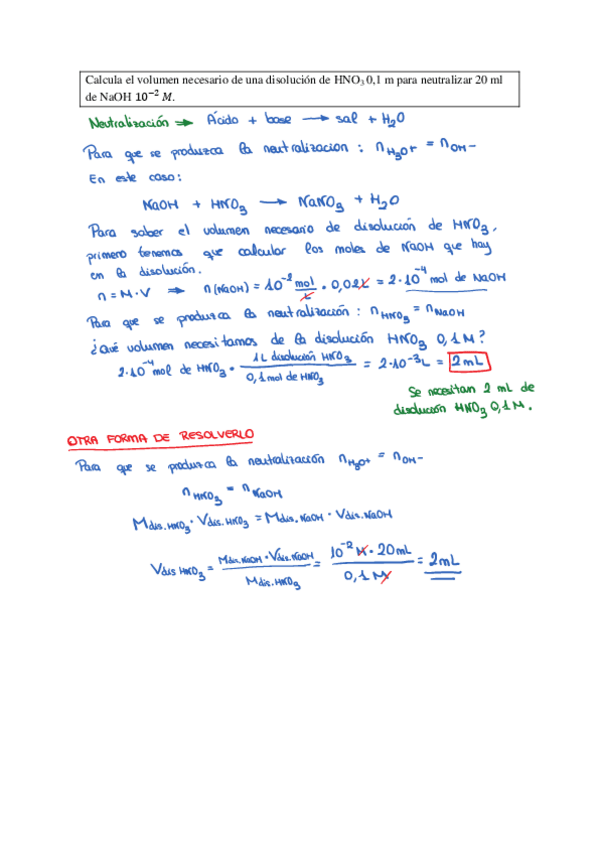 Calcula el volumen necesario de una disolución de HNO₃ 0,1 m para neutralizar 20 ml
de NaOH 10⁻² M.
Neutralización ⇒ Ácido + base ⟶ sal + H₂O
Para que se produzca la neutralizacion : n H₃O+ = n OH-
En este caso:
NaOH + HNO₃ ⟶ NaNO₃ + H₂O
Para saber el volumen necesario de disolución de HNO₃,
primero tenemos que calcular los moles de NaOH que hay
en la disolución.
n = M · V ⇒ n(NaOH) = 10⁻² mol/L · 0,02L = 2·10⁻⁴ mol de NaOH
Para que se produzca la neutralización : n HNO₃ = n NaOH
¿Qué volumen necesitamos de la disolución HNO₃ 0,1M?
2·10⁻⁴ mol de HNO₃ · 1L disolución HNO₃ / 0,1 mol de HNO₃ = 2·10⁻³L = 2mL
Se necesitan 2 mL de
disolución HNO₃ 0,1M.
OTRA FORMA DE RESOLVERLO
Para que se produzca la neutralización n H₃O+ = n OH-
n HNO₃ = n NaOH
Mdis.HNO₃ · Vdis.HNO₃ = Mdis.NaOH · Vdis.NaOH
Vdis HNO₃ = Mdis.NaOH · Vdis.NaOH / Mdis.HNO₃ = 10⁻² M · 20mL / 0,1M = 2mL